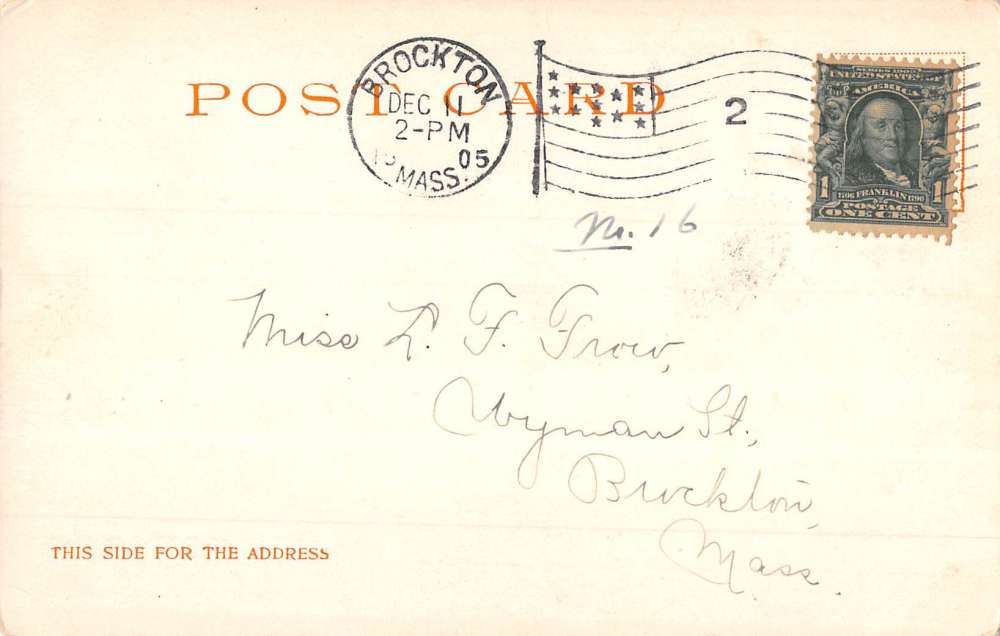 POST CARD
BROCKTON
DEC 11
2-PM
05
MASS.
2
SERIES 1902
UNITED STATES OF
AMERICA
1 1
1706 FRANKLIN 1790
POSTAGE
ONE CENT
No. 16
Miss L. F. Frow,
Wyman St.,
Brockton,
Mass.
THIS SIDE FOR THE ADDRESS